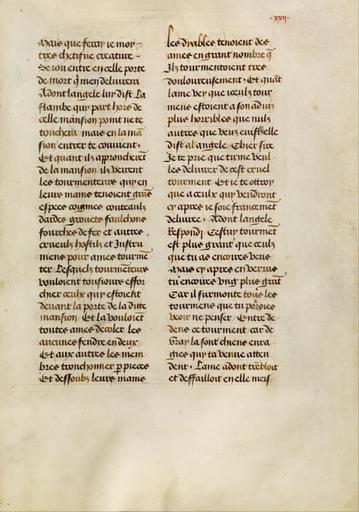 xxij
Mais que feray ie moy
tres chetifue creature
Se iou entre en celle porte
de mort q̄ men deliurera
Adont langele luy dist La
flambe qui part hors de
celle mansion point ne te
touchera mais en la mā
sion entrer te couuient.
Et quant ilz approcherēt
de la mansion ilz veirent
les tourmenteurs qui en
leurs mains tenoient grās
espees coignies couteaulz
dardes grouetz faulchons
fourches de fer et autres
crueulz hostilz et Instru
mens pour ames tourme
ter Lesquelz tourmēteurs
vouloient tousiours effor
chier ceulx qui estoient
deuant la porte de la dite
mansion Et la vouloiēt
toutes ames decoler les
aucunes fendre en deux
Et aux autres les mem
bres tronchonner p pieces
Et dessoubz leurs mains
les dyables tenoient des
ames en grant nombre q̄
Ilz tourmentoient tres
douloureusement Et quāt
lame vey que ceulz tour
mens estoient a son aduis
plus horribles que nulz
autres que veus euist elle
dist a langele Chier sire
Je te prie que tu me veul
les deliurer de cest cruel
tourment Et ie te ottroy
que a ceulx qui vendront
cy apres ie soie francemēt
deliuree Adont langele
Respondi Cestuy tourmēt
est plus grant que ceulz
que tu as encoires veus
Mais cy apres en verras
tu encoires vng plus grāt
Car il surmonte tous les
tourmens que tu puisses
veoir ne penser Entre de
dens ce tourment car de
vray la sont chiens enra
gies qui ta venue atten
dent Lame adont trēbloit
et deffailloit en elle meis